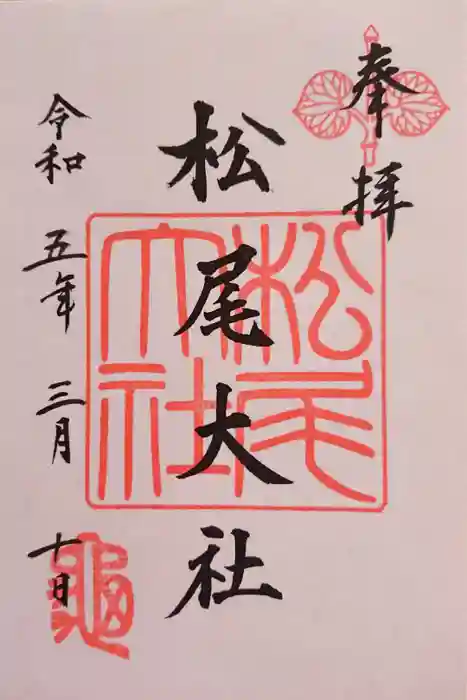 奉拝
松尾大社
松尾大社
令和五年三月十日
亀